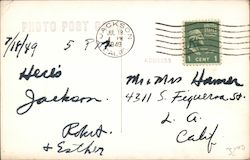 PHOTO POST
JACKSON
JUL 18
PM
1949
CALIF.
1 CENT 1
ADDRESS
7/18/49 5 PM
Here's
Jackson.
Robert
& Esther
Mr & Mrs Hamer
4311 S. Figueroa St.
L. A.
Calif